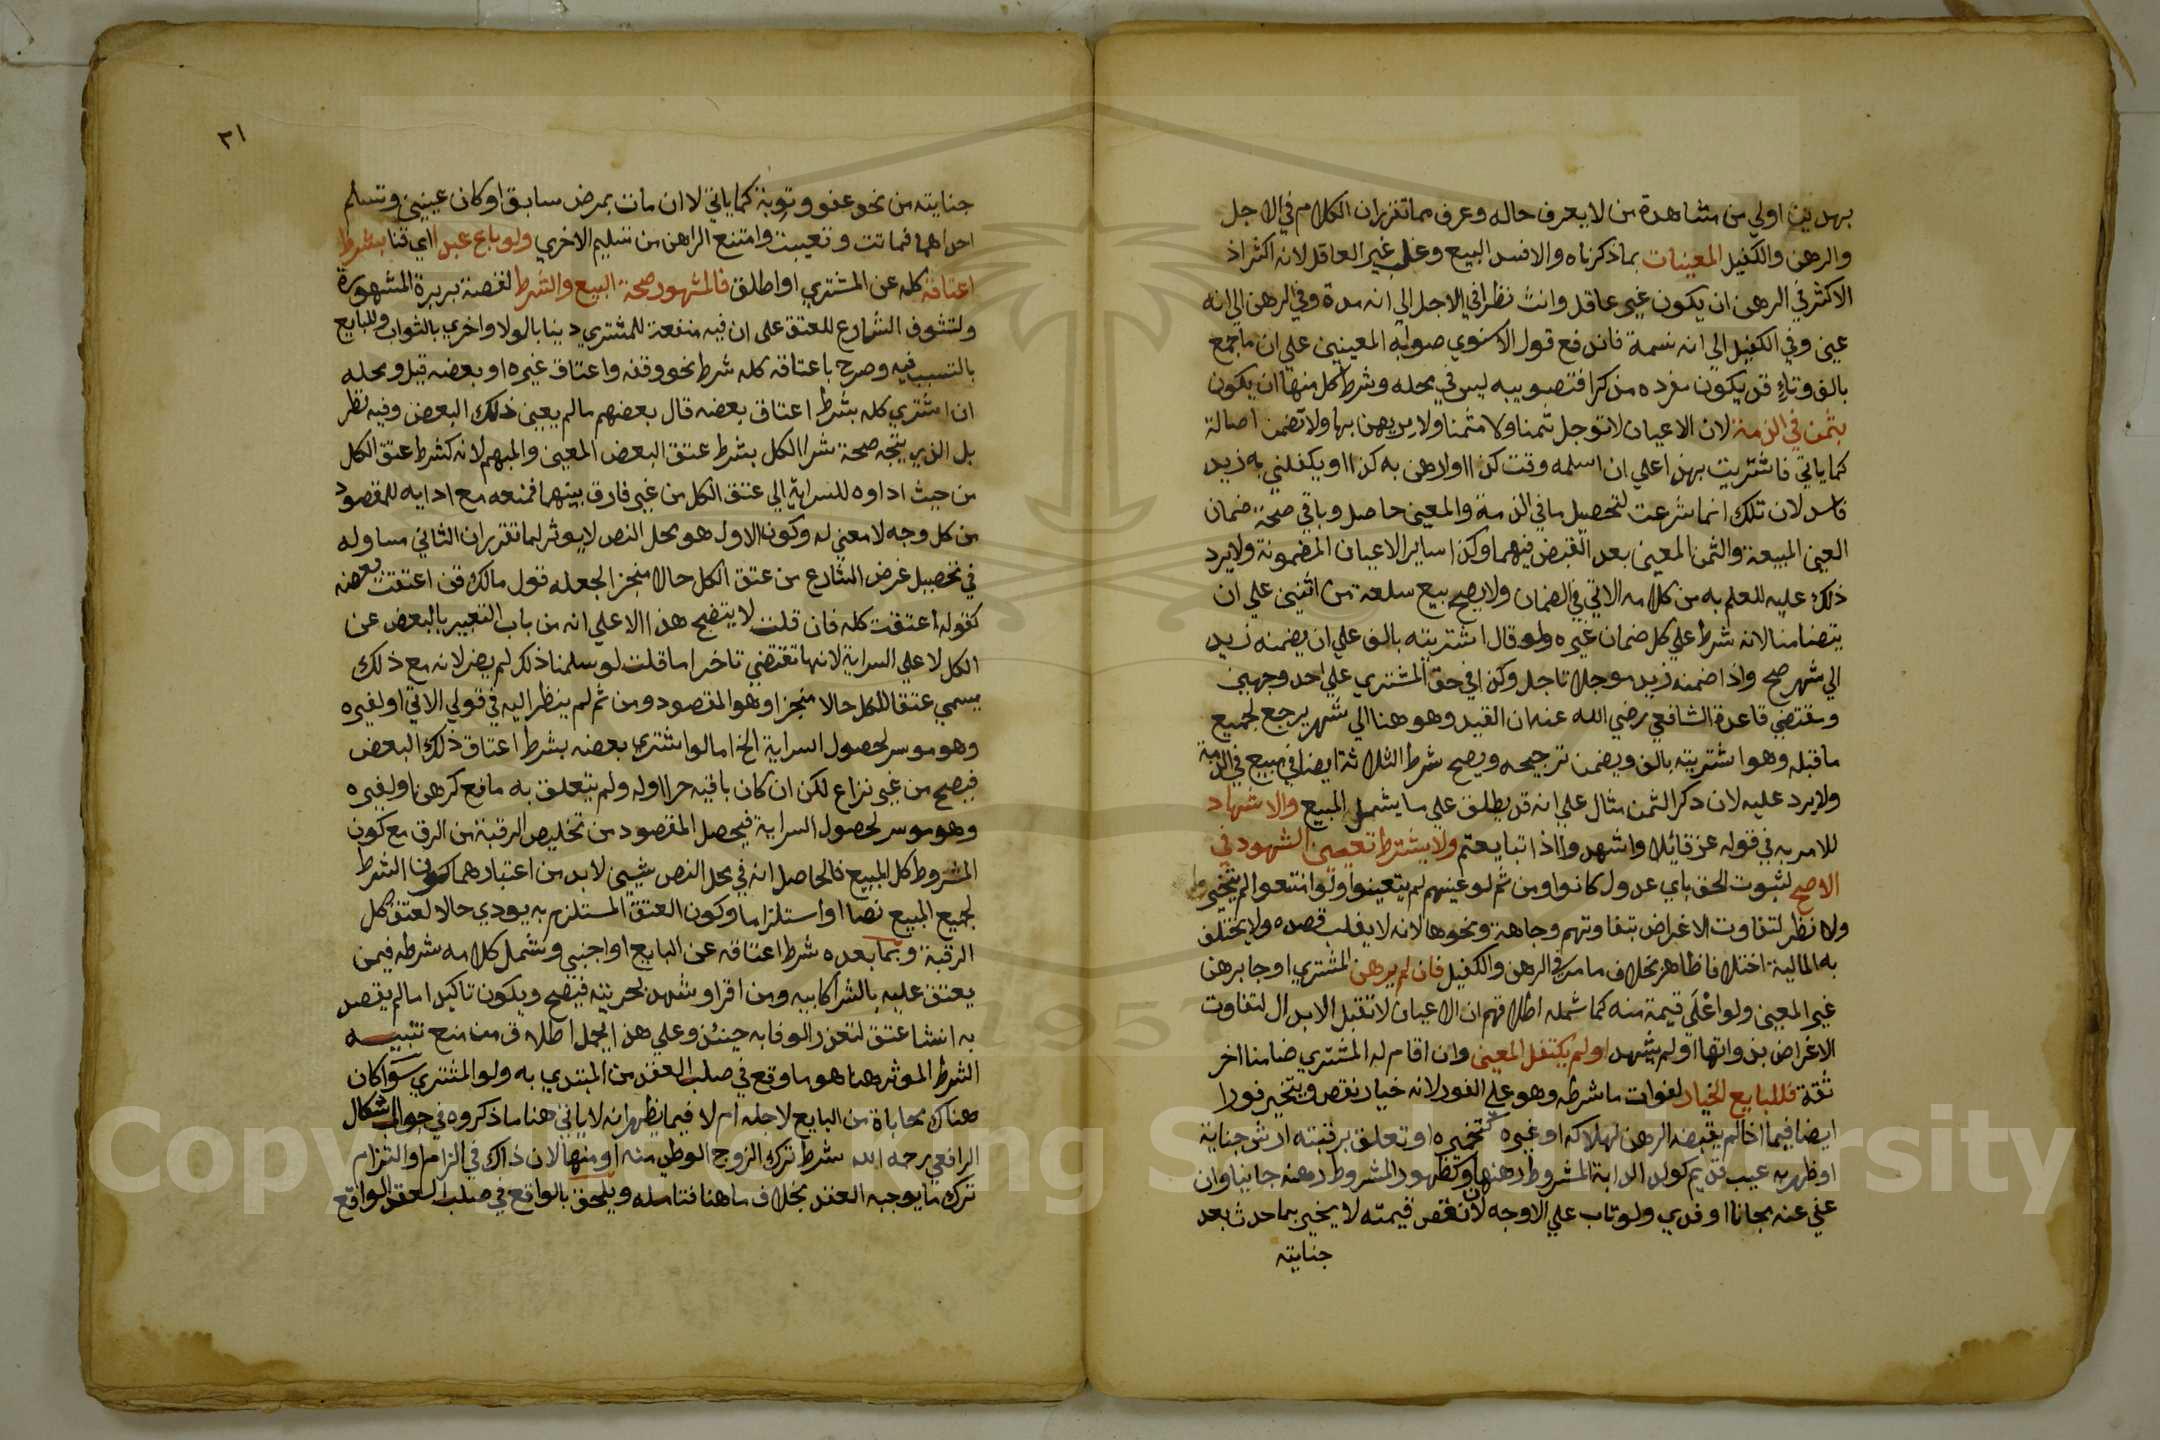 بهذين اولي من مشاهدة من لا يعرف حاله وعرف مما تقرر ان الكلام في الاجل
والرهن والكفيل المعينات بما ذكرناه والا فسد البيع وغلب غير العاقل لانه اكثر اذ
الاكثر في الرهن ان يكون غير عاقل وانث نظرا في الاجل الي انه مدة وفي الرهن الي انه
عين وفي الكفيل الي انه نسمة فاندفع قول الاسنوي صوابه المعينين علي ان ما جمع
بالف وتاء قد يكون مفرده مذكرا فتصويبه ليس في محله وشرط كل منها ان يكون
بثمن في الذمة لان الاعيان لا توجل ثمنا ولا مثمنا ولا يرتهن بها ولا تضمن اصالة
كما ياتي فاشتريت بهذا علي ان اسلمه وقت كذا او ارهن به كذا او يكفلني به زيد
فاسد لان تلك انما شرعت لتحصيل ما في الذمة والمعين حاصل وياتي صحة ضمان
العين المبيعة والثمن المعين بعد القبض فيهما وكذا ساير الاعيان المضمونة ولا يرد
ذلك عليه للعلم به من كلامه الاتي في الضمان ولا يصح بيع سلعة من اثنين علي ان
يتضامنا لانه شرط علي كل ضمان غيره ولو قال اشتريته بالف علي ان يضمنه زيد
الي شهر صح واذا ضمنه زيد موجلا تاجل وكذا في حق المشتري علي احد وجهين
ومقتضي قاعدة الشافعي رضي الله عنه ان القيد وهو هنا الي شهر يرجع لجميع
ما قبله وهو اشتريته بالف ويضمن ترجيحه ويصح شرط الثلاثة ايضا في مبيع في الذمة
ولا يرد عليه لان ذكر الثمن مثال علي انه قد يطلق علي ما يشمل المبيع والاشهاد
للامر به في قوله عز قائلا واشهدوا اذا تبايعتم ولا يشترط تعيين الشهود في
الاصح لثبوت الحق باي عدول كانوا ومن ثم لو عينهم لم يتعينوا ولو امتنعوا لم يتخير
ولا نظر لتفاوت الاغراض بتفاوتهم وجاهة ونحوها لانه لا يغلب قصده ولا يختلف
به المالية اختلافا ظاهرا بخلاف ما مر في الرهن والكفيل فان لم يرهن المشتري او جا برهن
غير المعين ولو اغلي قيمة منه كما شمله اطلاقهم ان الاعيان لا تقبل الابدال لتفاوت
الاغراض بذواتها او لم يشهد او لم يتكفل المعين وان اقام له المشتري ضامنا اخر
ثقة فللبايع الخيار لفوات ما شرطه وهو علي الفور لانه خيار نقص ويتخير فورا
ايضا فيما اذا لم يقبضه الرهن لهلاكه او غيره كتخيره او تعلق برقبته ارش جناية
او ظهر به عيب قديم كولد الدابة المشروط رهنها وكظهور المشروط رهنه جانيا وان
عفي عنه مجانا او فدي ولو تاب علي الاوجه لان نقص قيمته لا يخير بما حدث بعد
جنايته
٣١
جنايته من نحو عفو وتوبة كما ياتي لا ان مات بمرض سابق او كان عينين وتسلم
احداهما فماتت وتعيبت وامتنع الراهن من تسليم الاخري ولو باع عبدا اي قنا بشرط
اعتاقه كله عن المشتري او اطلق فالمشهور صحة البيع والشرط لقصة بريرة المشهورة
ولتشوف الشارع للعتق علي ان فيه منفعة للمشتري دنيا بالولا واخري بالثواب وللبايع
بالتسبب فيه وصرح باعتاقه كله شرط نحو وقفه واعتاق غيره او بعضه قيل ومحله
ان اشتري كله بشرط اعتاق بعضه قال بعضهم ما لم يعين ذلك البعض وفيه نظر
بل الذي يتجه صحة شرا الكل بشرط عتق البعض المعين والمبهم لانه كشرط عتق الكل
من حيث اداوه للسراية الي عتق الكل من غير فارق بينهما فمنعه مع ادايه للمقصود
من كل وجه لا معني له وكون الاول هو محل النص لا يوثر لما تقرر ان الثاني مساو له
في تحصيل غرض الشارع من عتق الكل حالا منجزا لجعله قول مالك قن اعتقت بعضه
كقوله اعتقت كله فان قلت لا يتضح هذا الا علي انه من باب التعبير بالبعض عن
الكل لا علي السراية لانها تقتضي تاخرا ما قلت لو سلمنا ذلك لم يضر لانه مع ذلك
يسمي عتقا للكل حالا منجزا وهو المقصود ومن ثم لم ينظر اليه في قولي الاتي او لغيره
وهو موسر لحصول السراية الخ اما لو اشتري بعضه بشرط اعتاق ذلك البعض
فيصح من غير نزاع لكن ان كان باقيه حرا او له ولم يتعلق به مانع كرهن او لغيره
وهو موسر لحصول السراية فيحصل المقصود من تخليص الرقبة من الرق مع كون
المشروط كل المبيع فالحاصل انه في محل النص شيين لا بد من اعتبارهما كون الشرط
لجميع المبيع نصا او استلزاما وكون العتق المستلزم به يودي حالا لعتق كل
الرقبة وبما بعده شرط اعتاقه عن البايع او اجنبي وشمل كلامه شرطه فيمن
يعتق عليه بالشرا كابيه ومن اقر او شهد بحريته فيصح ويكون تاكيدا ما لم يقصد
به انشا عتق لتعذر الوفا به حينئذ وعلي هذا يحمل اطلاق من منع تنبيه
الشرط الموثر هنا هو ما وقع في صلب العقد من المبتدي به ولو المشتري سوا كان
هناك محاباة من البايع لاجله ام لا فيما يظهر انه لا ياتي هنا ما ذكروه في جواب اشكال
الرافعي رحمه الله شرط ترك الزوج الوطي منه او منها لان ذاك في الزام او التزام
ترك ما يوجبه العقد بخلاف ما هنا فتامله ويلحق بالواقع في صلب العقد الواقع
Copyright © King Saud University
1957